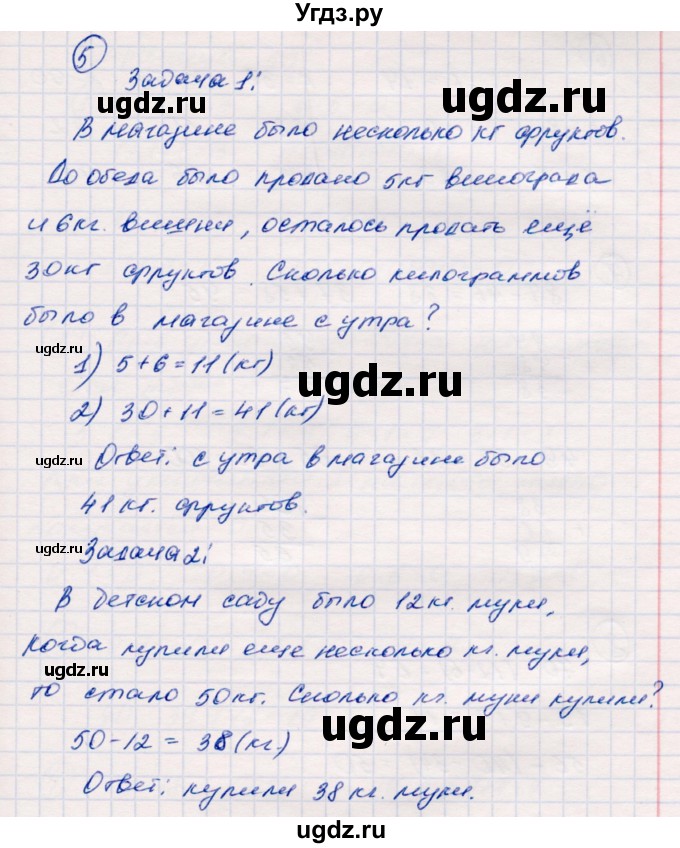 Угдз.ру
5
Задача 1:
ugdz.ru ugdz.ru
В магазине было несколько кг фруктов.
До обеда было продано 5кг винограда
и 6кг. вишени, осталось продать ещё
30кг фруктов. Сколько килограммов
было в магазине с утра?
ugdz.ru
1) 5+6=11(кг)
ugdz.ru
2) 30+11=41(кг)
ugdz.ru
Ответ: с утра в магазине было
41кг. фруктов.
ugdz.ru
Задача 2:
В детском саду было 12кг. муки,
когда купили еще несколько кг. муки,
ugdz.ru
то стало 50кг. Сколько кг. муки купили?
ugdz.ru
50-12=38(кг.)
ugdz.ru
Ответ: купили 38кг. муки.
ugdz.ru